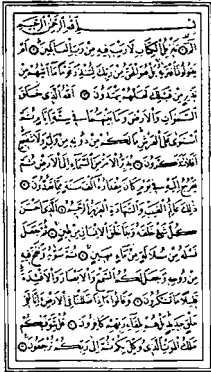 بسم الله الرحمن الرحيم
الم تنزيل الكتاب لا ريب فيه من رب العالمين أم
يقولون افتراه بل هو الحق من ربك لتنذر قوما ما أتاهم من
نذير من قبلك لعلهم يهتدون الله الذي خلق
السموات والأرض وما بينهما في ستة أيام ثم
استوى على العرش ما لكم من دونه من ولي ولا شفيع
أفلا تتذكرون يدبر الأمر من السماء إلى الأرض ثم
يعرج إليه في يوم كان مقداره ألف سنة مما تعدون
ذلك عالم الغيب والشهادة العزيز الرحيم الذي أحسن
كل شيء خلقه وبدأ خلق الإنسان من طين ثم جعل
نسله من سلالة من ماء مهين ثم سواه ونفخ فيه
من روحه وجعل لكم السمع والأبصار والأفئدة
قليلا ما تشكرون وقالوا أإذا ضللنا في الأرض أإنا لفي
خلق جديد بل هم بلقاء ربهم كافرون قل يتوفاكم
ملك الموت الذي وكل بكم ثم إلى ربكم ترجعون